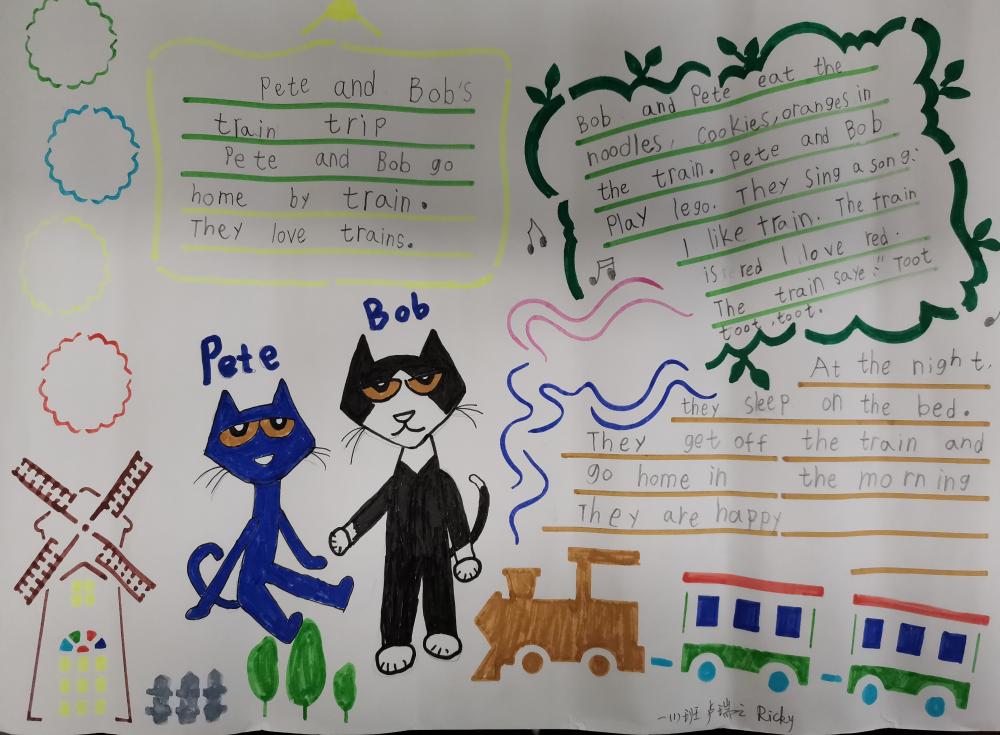 Pete and Bob's
train trip
Pete and Bob go
home by train.
They love trains.
Bob and Pete eat the
noodles, cookies, oranges in
the train. Pete and Bob
Play lego. They sing a song:
I like train. The train
is red I love red.
The train saye:" Toot
toot, toot.
Pete
Bob
At the night,
they sleep on the bed.
They get off the train and
go home in the morning
They are happy
一(1)班 卢瑞之 Ricky